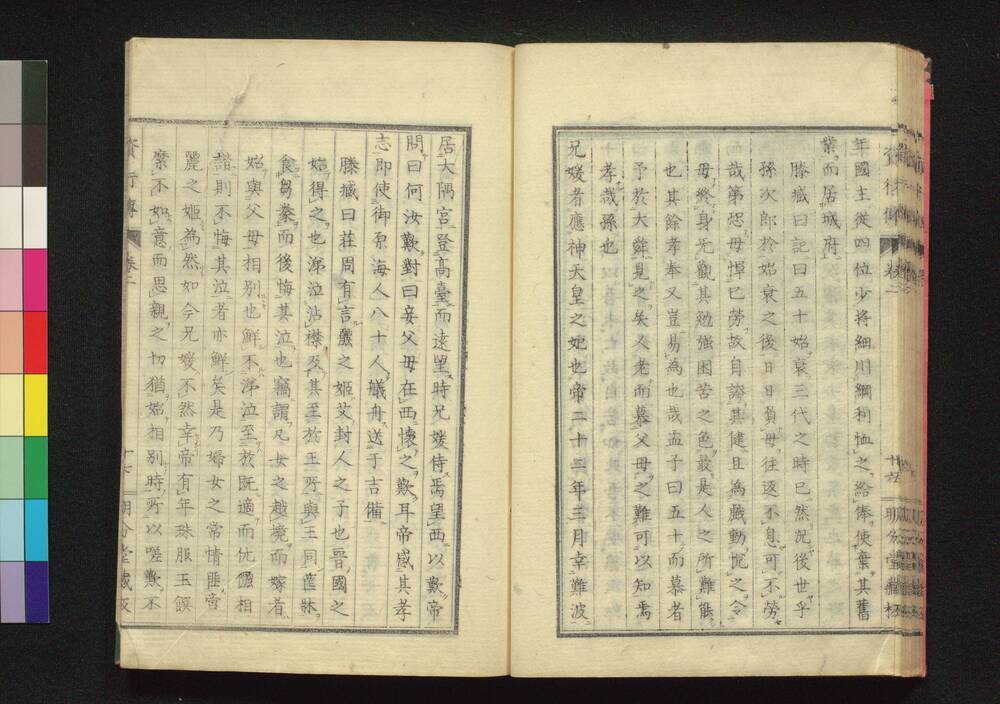 年國主從四位少將細川綱利恤之給俸使棄其舊
業而居城府
滕臧曰記曰五十始衰三代之時已然況後世乎
孫次郎於始衰之後日日負母往返不息可不勞
哉第恐母憚已勞故自誇其健且為戲動悦之令
母終身旡觀其勉強困苦之色最是人之所難能
也其餘孝奉又豈易為也哉孟子曰五十而慕者
予於大舜見之矣人老而慕父母之難可以知焉
孝哉孫也
兄媛者應神天皇之妃也帝二十二年三月幸難波
居大隅宮登高臺而遠望時兄媛侍焉望西以歎帝
問曰何汝歎對曰妾父母在西懷之歎耳帝感其孝
志即使御原海人八十人艤舟送于吉備
滕臧曰莊周有言麗之姬艾封人之子也晉國之
始得之也涕泣沾襟及其至於王所與王同筐牀
食芻豢而後悔其泣也竊謂凡女之越境而嫁者
始與父母相別也鮮不涕泣至於既適而伉儷相
諧則不悔其泣者亦鮮矣是乃婦女之常情匪啻
麗之姬為然如今兄媛不然幸帝有年珠服玉饌
縻不如意而思親之切猶始相別時所以嗟歎不
資行傳 卷二 十七 明分堂藏板